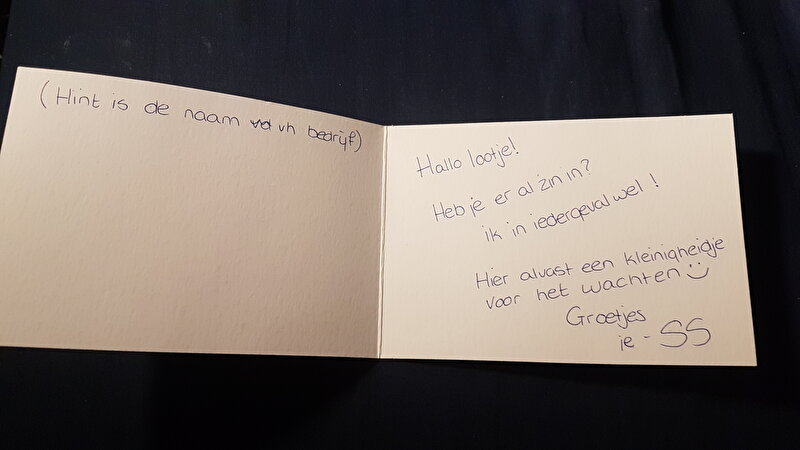 (Hint is de naam vd vh bedrijf)
Hallo lootje!
Heb je er al zin in?
ik in iedergeval wel!
Hier alvast een kleinigheidje
voor het wachten :)
Groetjes
je - SS